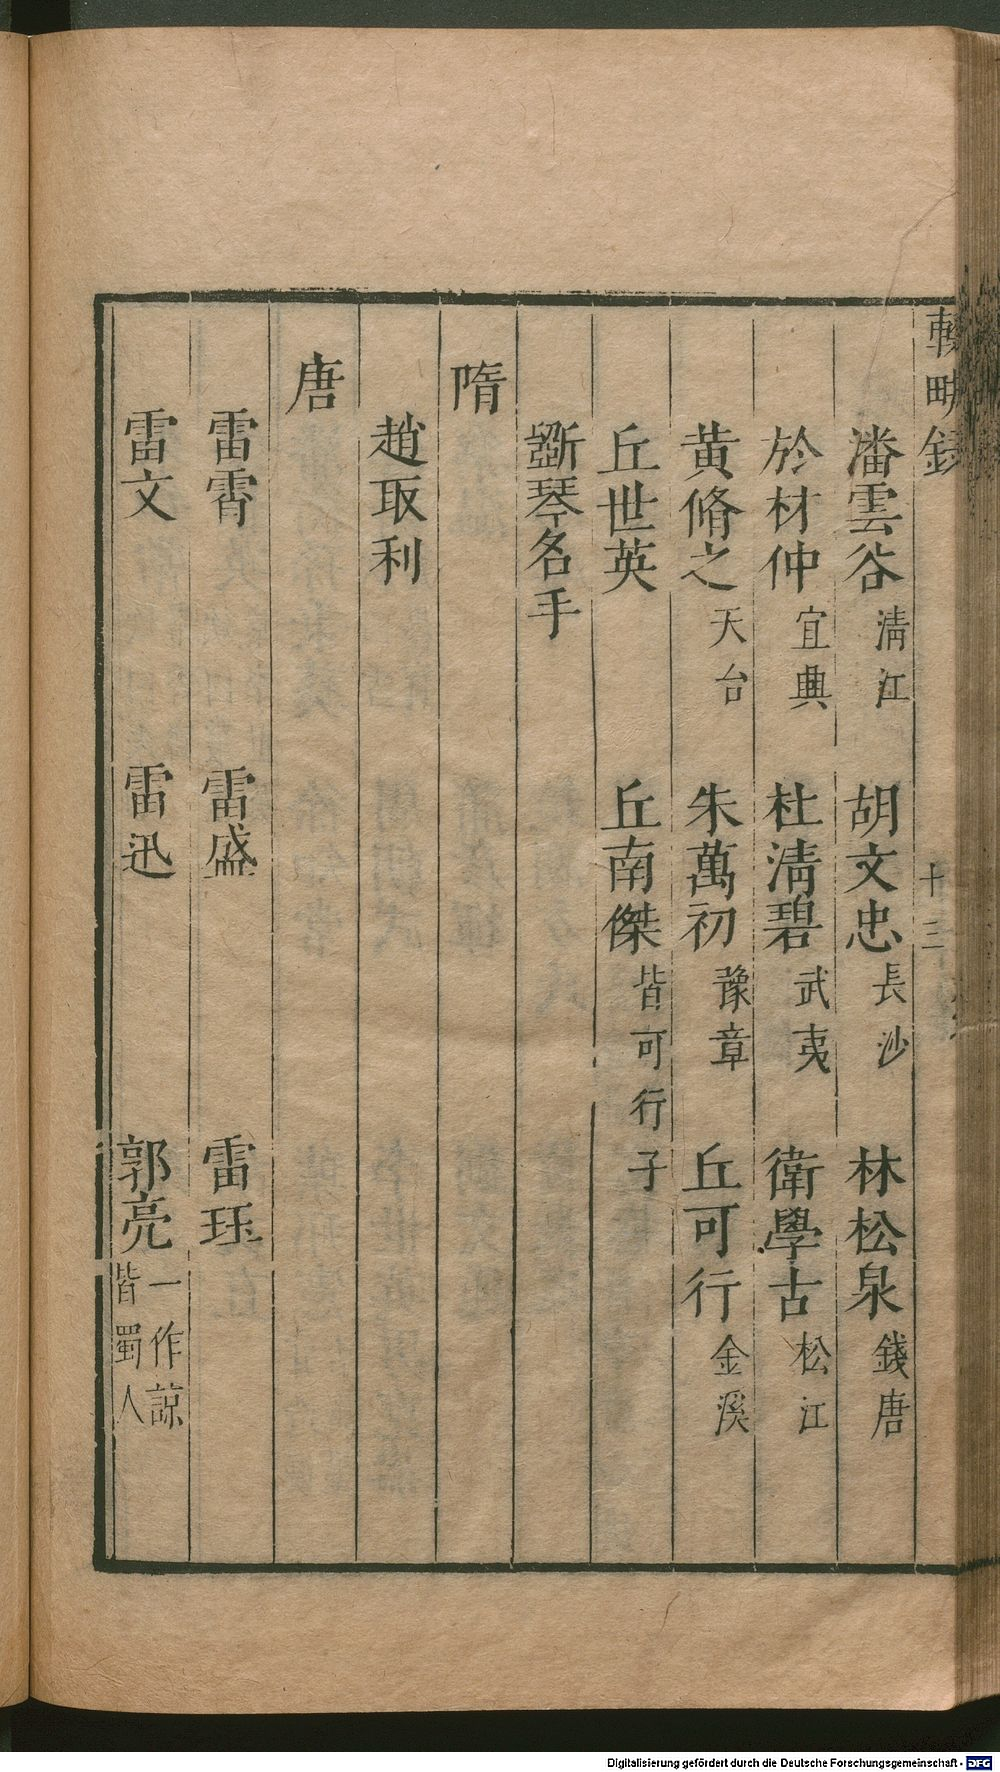 輟畊錄
十三
潘雲谷清江 胡文忠長沙 林松泉錢唐
於材仲宜興 杜清碧武夷 衛學古松江
黃脩之天台 朱萬初豫章 丘可行金溪
丘世英 丘南傑皆可行子
斵琴名手
隋
趙取利
唐
雷霄 雷盛 雷珏
雷文 雷迅 郭亮一作諒皆蜀人
Digitalisierung gefördert durch die Deutsche Forschungsgemeinschaft - DFG